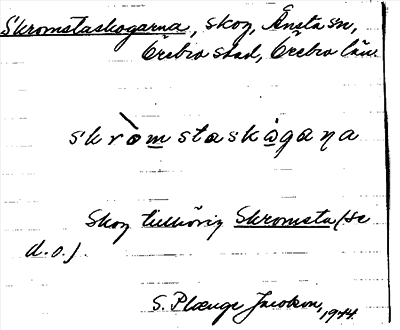 Skromstaskogarna, skog, Ånsta sn,
Örebro stad, Örebro län
skròmstaskògaɳa
Skog tillhörig Skromsta (se
d.o.).
S. Plænge Jacobson, 1944.